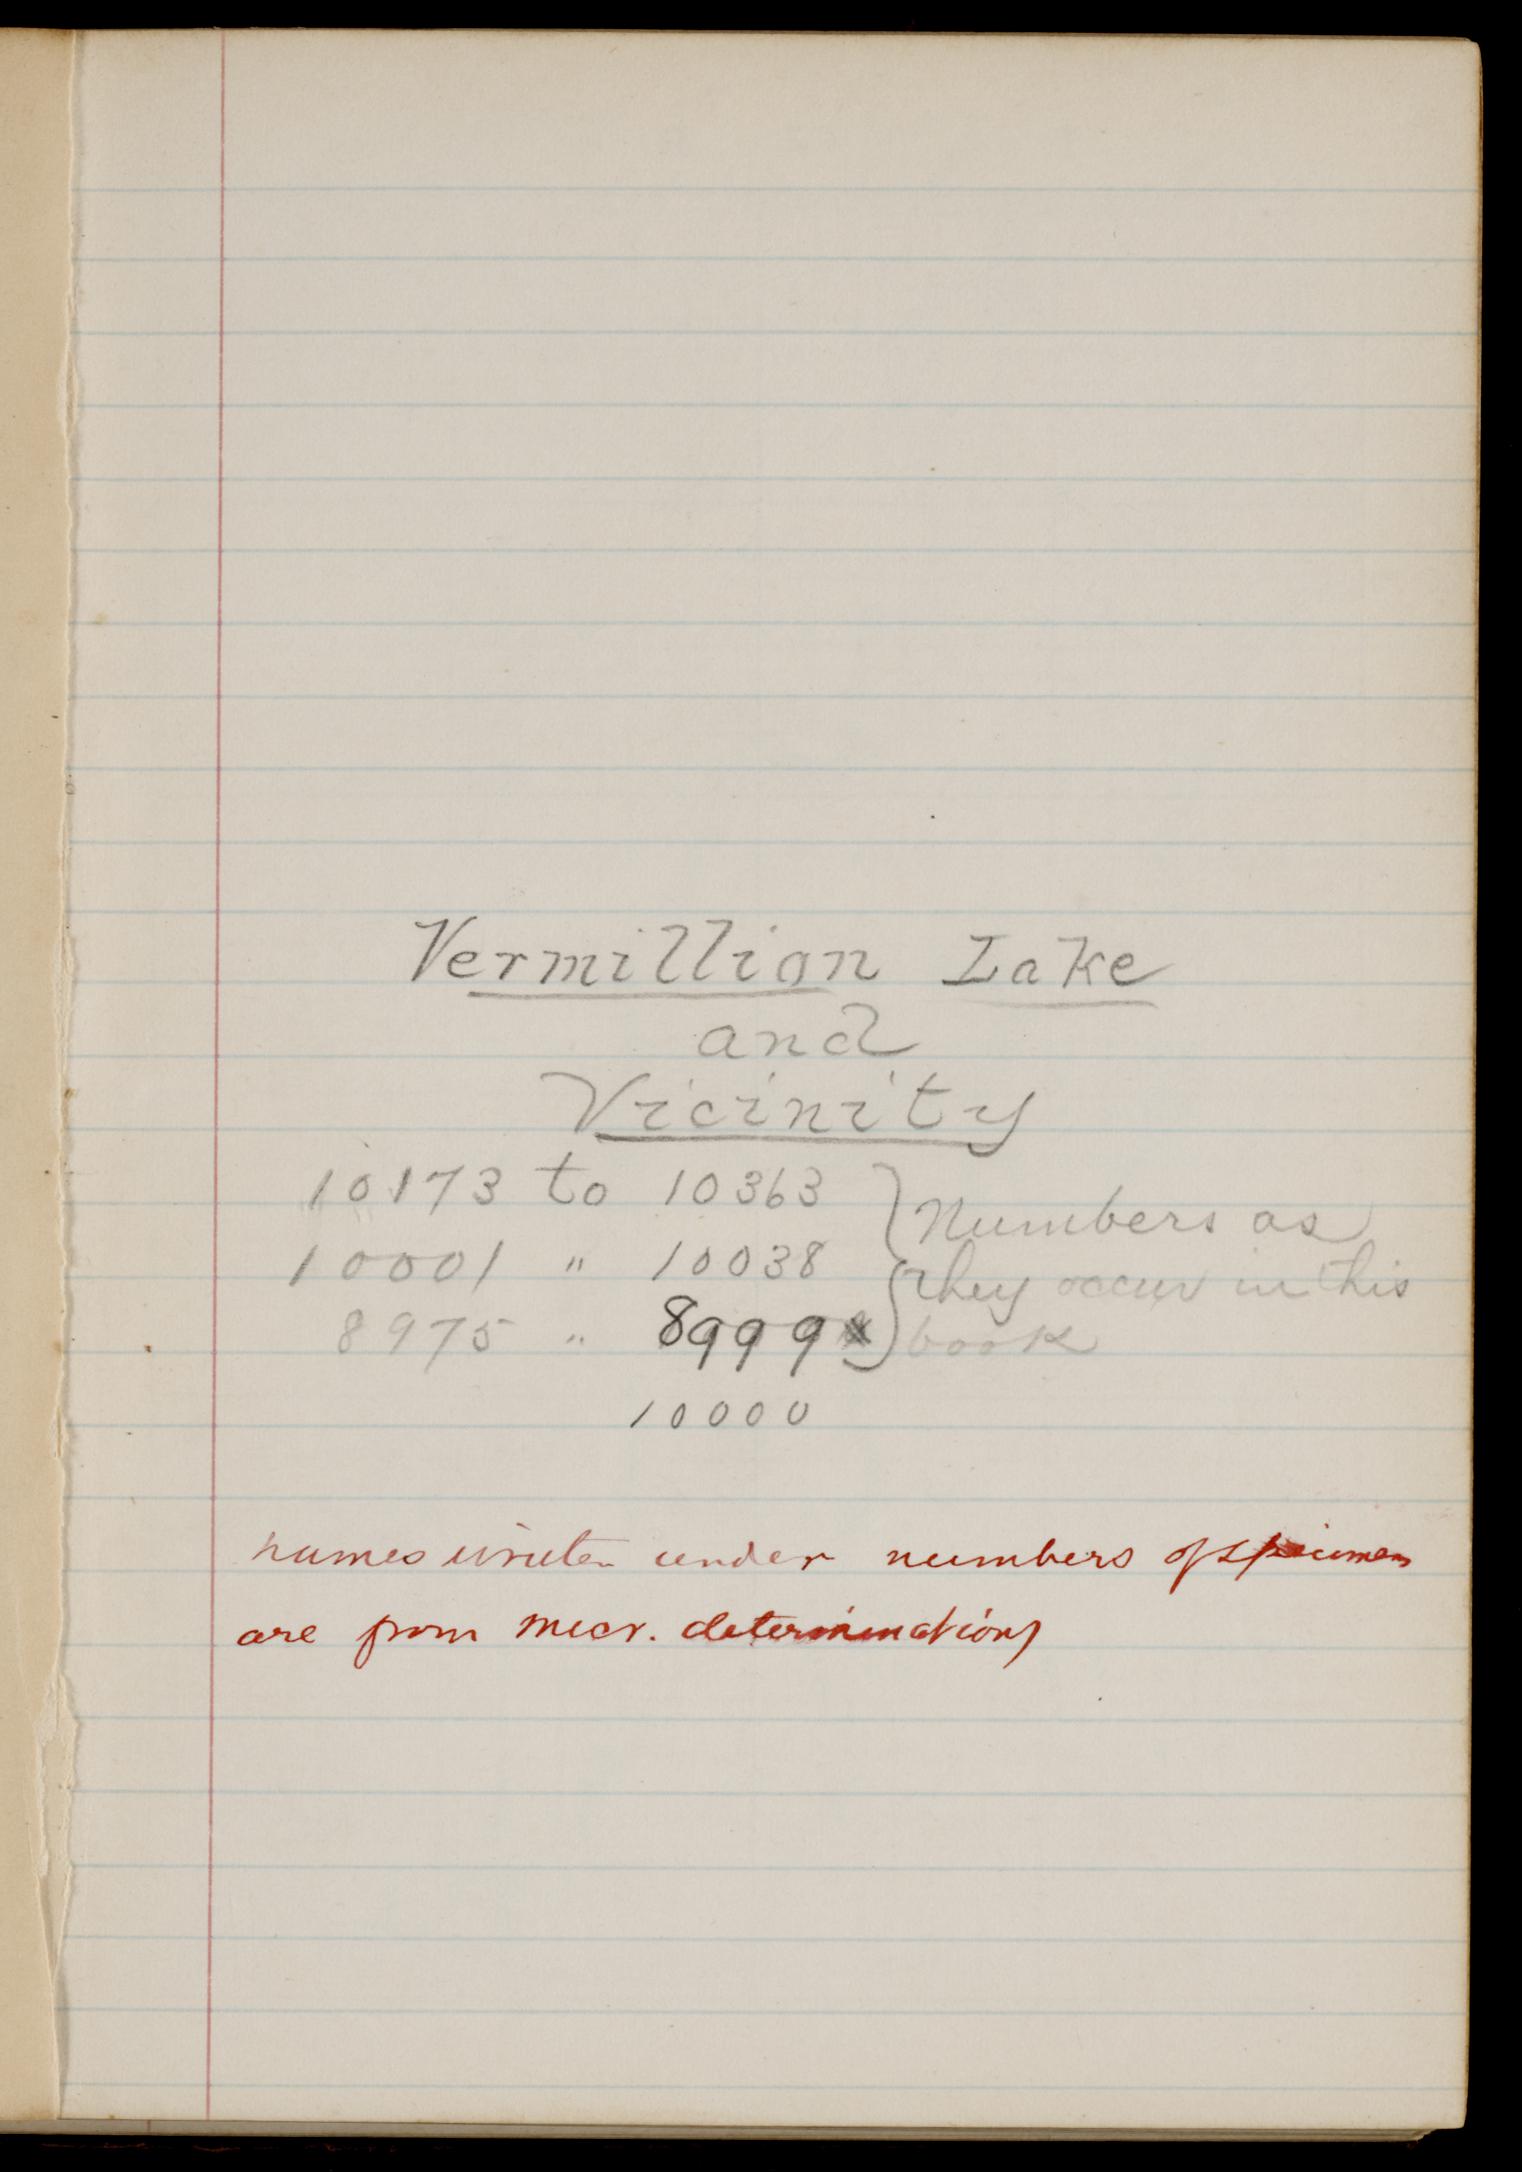 Vermillion Lake
and
Vicinity
10173 to 10363 } Numbers as
10001 " 10038 they occur in this
8975 " 8999 book
10000
names writen under numbers of specimens
are from micr. determinations